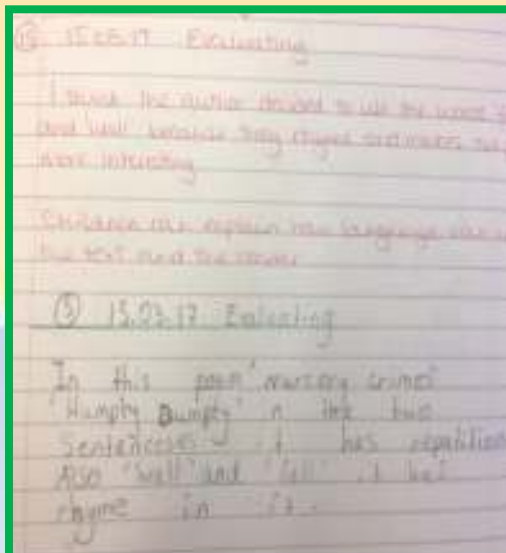 15.03.17 Evaluating
I think the author decided to use the word
and 'wall' because they rhyme and makes
more interesting
Children can explain how language
the text and the reader
③ 15.03.17 Evaluating
In this poem 'nursery crimes'
'Humpty Dumpty' in the two
Sentences it has repetition
Also 'wall' and 'fall' it has
rhyme in it.